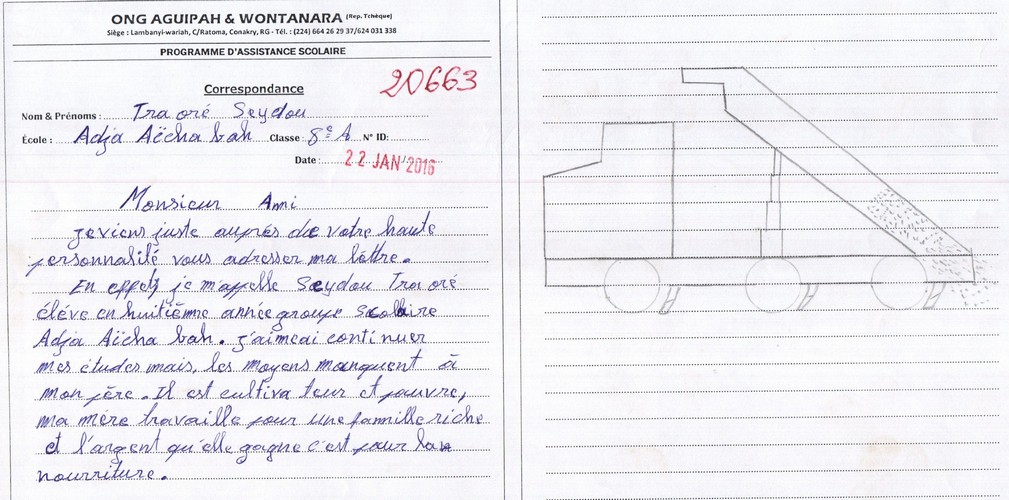 ONG AGUIPAH & WONTANARA (Rep. Tchèque)
Siège : Lambanyi-wariah, C/Ratoma, Conakry, RG - Tél. : (224) 664 26 29 37/624 031 338
PROGRAMME D'ASSISTANCE SCOLAIRE
20663
Correspondance
Nom & Prénoms : Traoré Seydou
École : Adja Aïcha bah Classe : 8e A N° ID:
Date : 22 JAN 2016
Monsieur Ami
Je viens juste auprès de votre haute
personnalité vous adresser ma lèttre.
En effet, je m'appelle Seydou Traoré
élève en huitième année groupe Scolaire
Adja Aïcha bah. j'aimerai continuer
mes études mais, les moyens manquent à
mon père. Il est cultivateur et pauvre,
ma mère travaille pour une famille riche
et l'argent qu'elle gagne c'est pour la
nourriture.